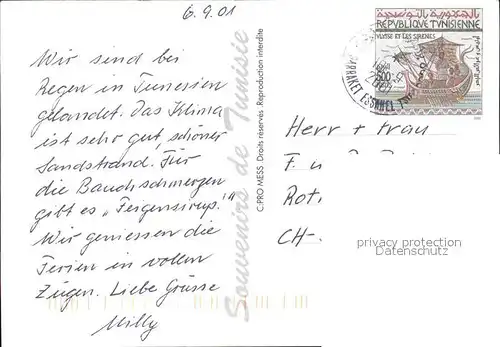 6.9.01
Wir sind bei
Regen in Tunesien
gelandet. Das Klima
ist sehr gut, schöner
Sandstrand. Für
die Bauchschmerzen
gibt es "Feigensirup."
Wir geniessen die
Ferien in vollen
Zügen. Liebe Grüsse
Milly
Souvenirs de Tunisie
C. PRO MESS. Droits réservés - Reproduction interdite
الجمهورية التونسية
REPUBLIQUE TUNISIENNE
ULYSSE ET LES SIRENES
600
MARRAKET ESSAHEL
Herr + Frau
F
Rot.
CH-
privacy protection
Datenschutz